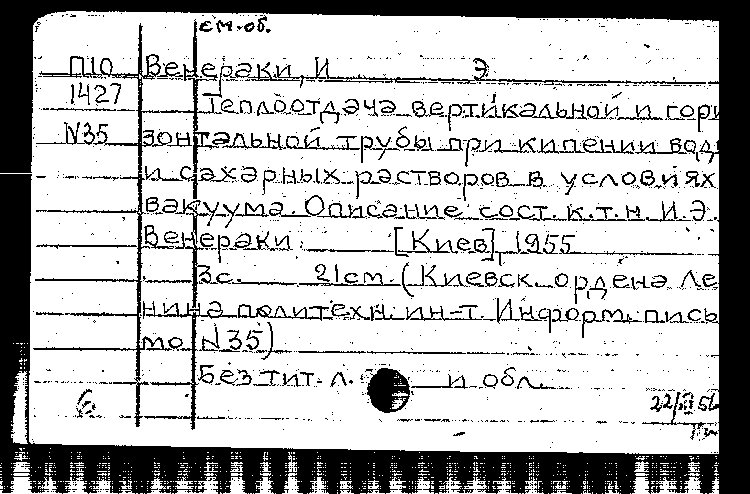 см. об.
П10 Венераки, И Э
1427 Теплоотдача вертикальной и гори
N35 зонтальной трубы при кипении вод
и сахарных растворов в условиях
вакуума. Описание сост. к.т.н. И.Э.
Венераки. [Киев], 1955
3с. 21см. (Киевск. ордена Ле
нина политехн. ин-т. Информ. пись
мо N35)
Без тит. л. и обл.
6